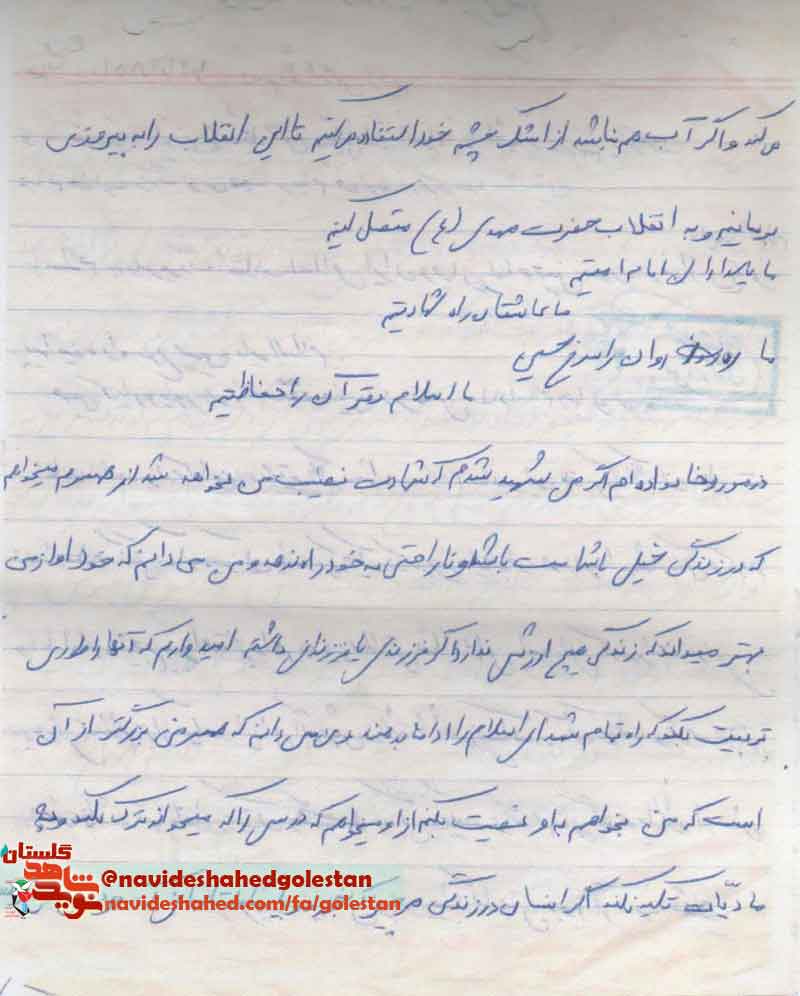 می کند و اگر آب هم نباشد از اشک چشم خود استفاده می کنیم تا این انقلاب را به پیروزی
برسانیم و به انقلاب حضرت مهدی (ع) متصل کنیم
ما پاسداران امام امتیم
ما عاشقان راه شهادتیم
ما روان راه سرخ حسینی
ما اسلام و قرآن را حفاظتیم
در مورد خانواده ام اگر من شهید شدم که شهادت نصیب من نخواهد شد از همسرم میخواهم
که در زندگی خیلی باشد و ناراحتی به خود راه ندهد و من می دانم که خود او از من
بهتر میداند که زندگی هیچ ارزشی ندارد اگر فرزندی یا فرزندانی داشتم امیدوارم که آنها را طوری
تربیت بکند که راه تمام شهدای اسلام را ادامه بدهند می دانم که همسر من بزرگتر از آن
است که من بخواهم به او نصیحت بکنم از او میخواهم که درسی را که میخواند ترک نکند و به
مادیات تکیه نکند اگر انسان در زندگی هر چیزی
گلستان
نوید شاهد
@navideshahedgolestan
navideshahed.com/fa/golestan